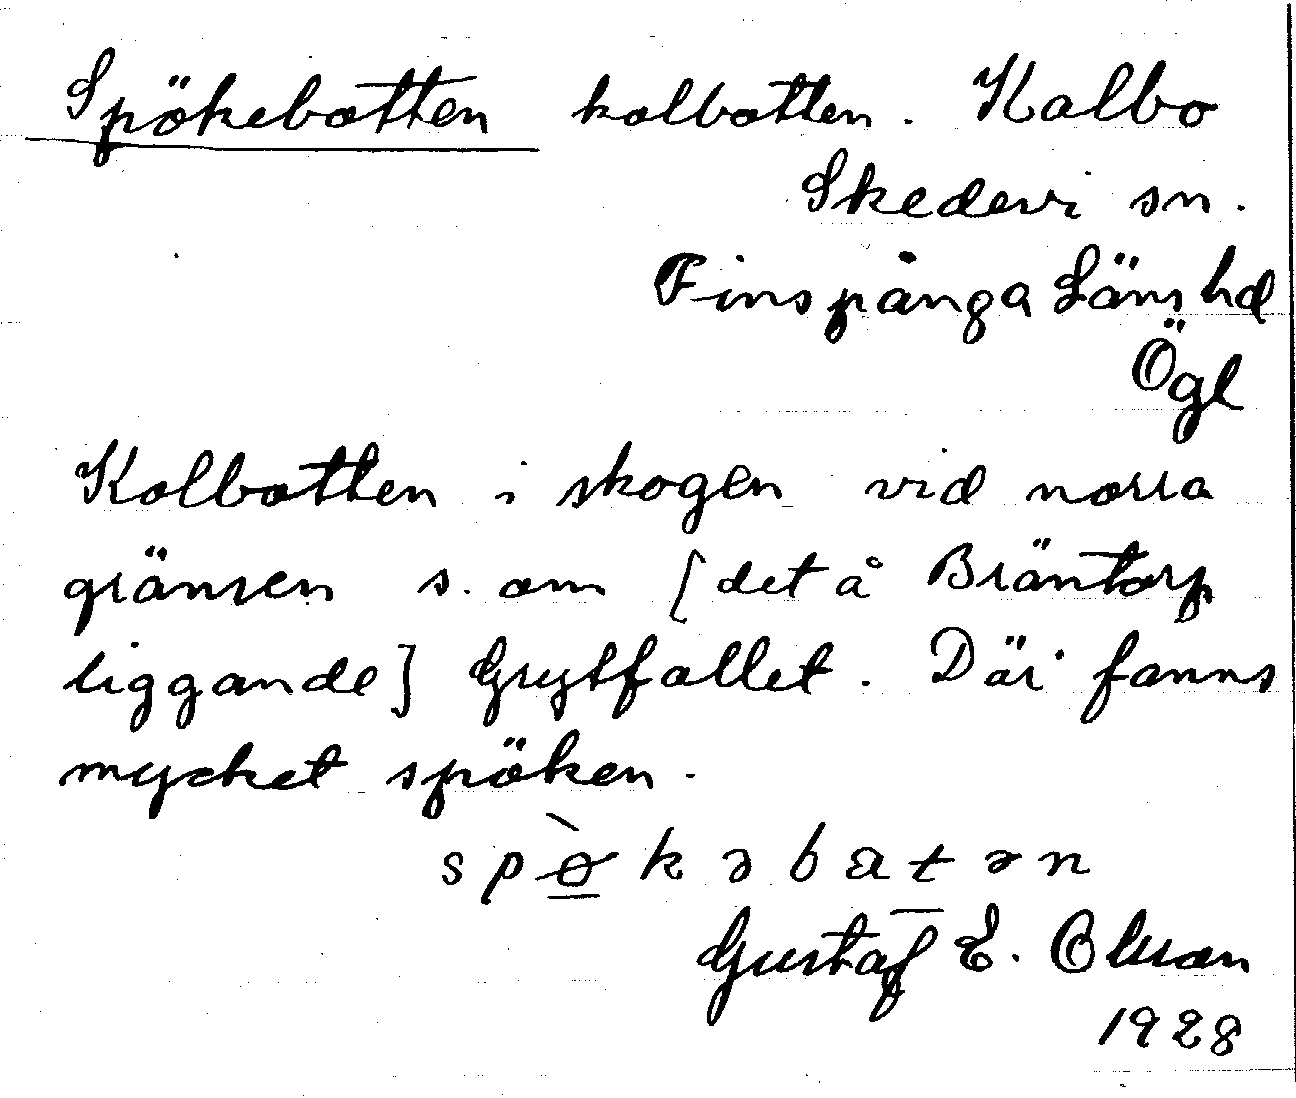 Spökebotten kolbotten. Kolbo
Skedevi sn.
Finspånga Läns hd
Ögl
Kolbotten i skogen vid norra
gränsen s. om [det å Bräntorp
liggande] Grytfallet. Där fanns
mycket spöken.
spø̀kəbatən
Gustaf E. Olsson
1928